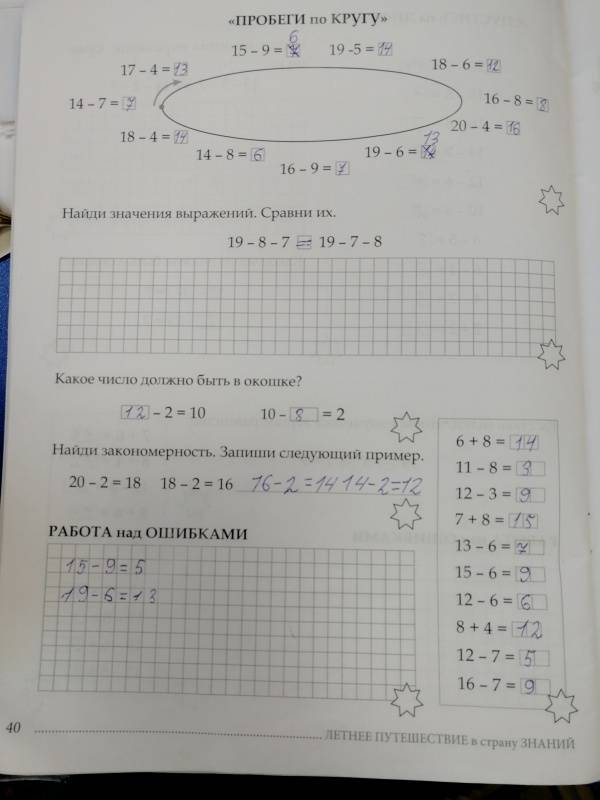 «ПРОБЕГИ по КРУГУ»
6
15 – 9 = 19 -5 = 14
17 – 4 = 13 18 – 6 = 12
14 – 7 = 7 16 – 8 = 8
18 – 4 = 14 20 – 4 = 16
13
14 – 8 = 6 19 – 6 =
16 – 9 = 7
Найди значения выражений. Сравни их.
19 – 8 – 7 = 19 – 7 – 8
Какое число должно быть в окошке?
12 – 2 = 10 10 – 8 = 2
Найди закономерность. Запиши следующий пример.
20 – 2 = 18 18 – 2 = 16 16-2=14 14-2=12
РАБОТА над ОШИБКАМИ
15-9=5
19-6=13
6 + 8 = 14
11 – 8 = 3
12 – 3 = 9
7 + 8 = 15
13 – 6 = 7
15 – 6 = 9
12 – 6 = 6
8 + 4 = 12
12 – 7 = 5
16 – 7 = 9
40 ЛЕТНЕЕ ПУТЕШЕСТВИЕ в страну ЗНАНИЙ